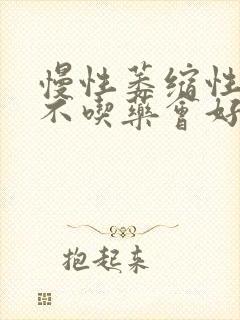 慢性萎缩性
不喫藥會好
抱起来